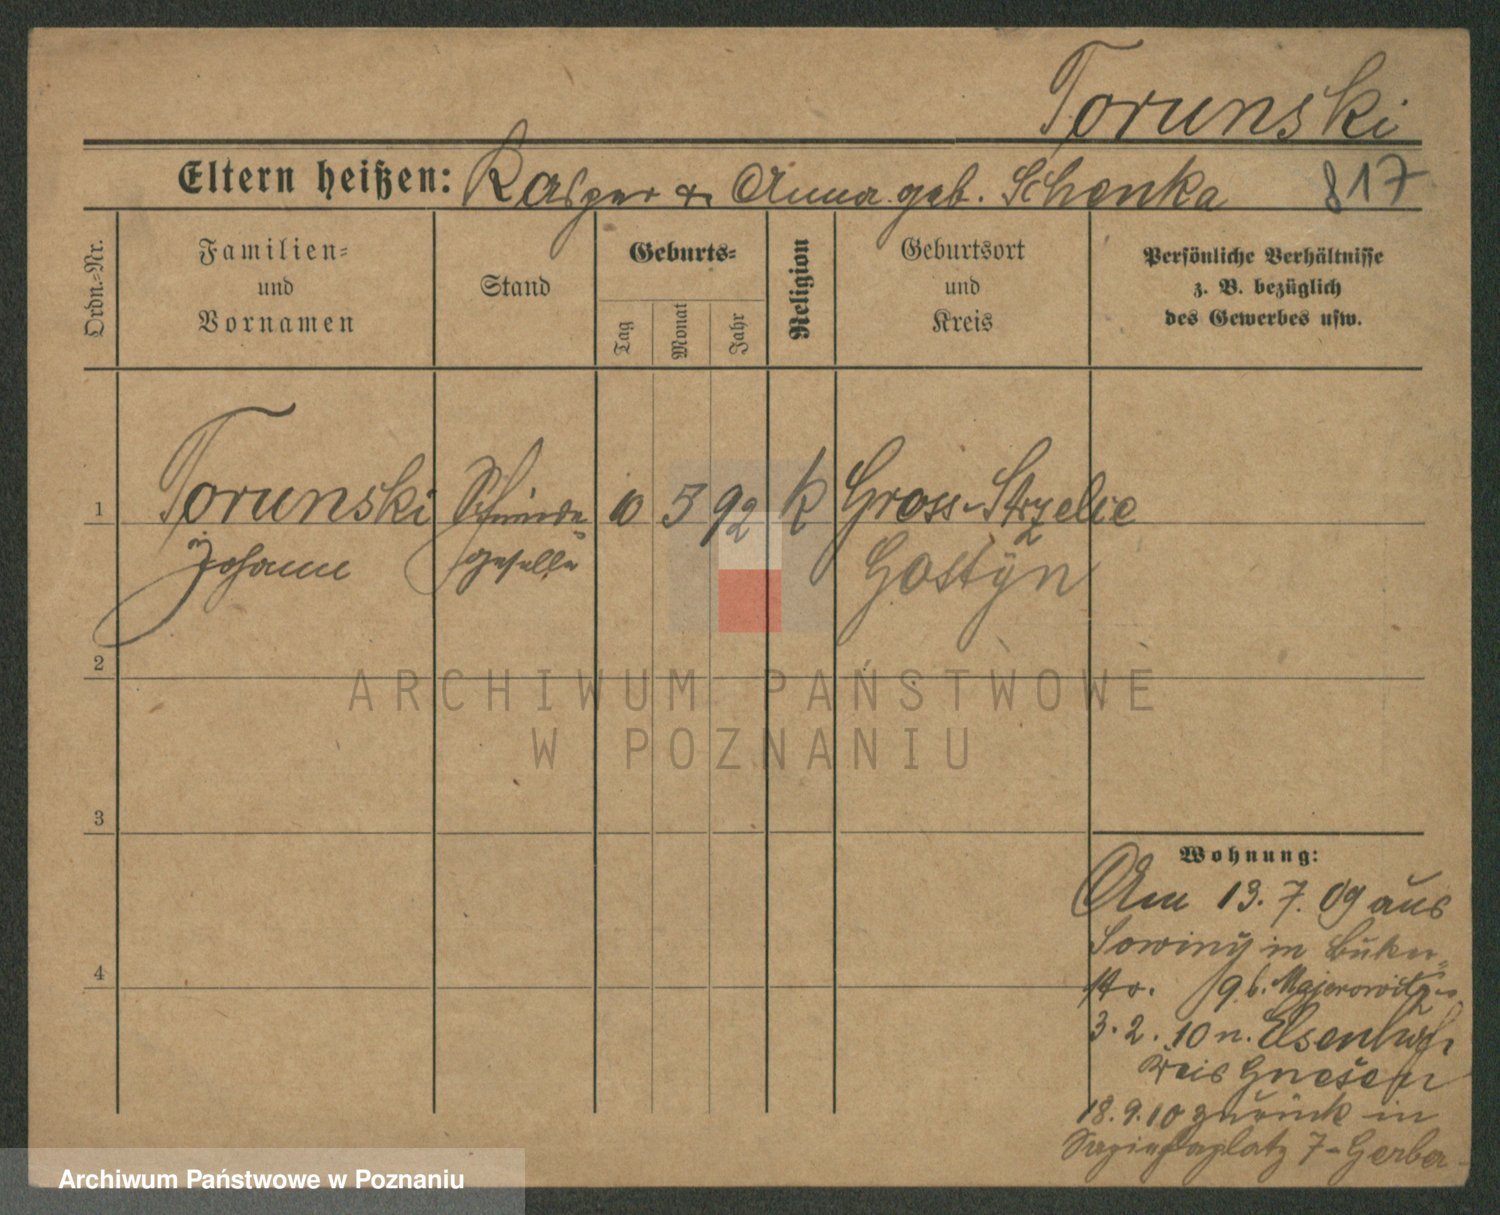 Torunski
Eltern heißen: Kasper & Anna geb. Schenka 817
Ordn.-Nr.
Familien-
und
Vornamen
Stand
Geburts-
Tag
Monat
Jahr
Religion
Geburtsort
und
Kreis
Persönliche Verhältnisse
z. B. bezüglich
des Gewerbes usw.
1 Torunski Schmiede 10 5 92 k Gross-Strzelce
Johann geselle Gostÿn
2
ARCHIWUM PAŃSTWOWE
W POZNANIU
3
Wohnung:
Am 13. 7. 09 aus
Sowiny in Buker-
4
str. 19 b. Majerowitz
3. 2. 10 n. Elsenhof
Kreis Gnesen
18. 9. 10 zurück in
Sapiehaplatz 7 - Gerber
Archiwum Państwowe w Poznaniu